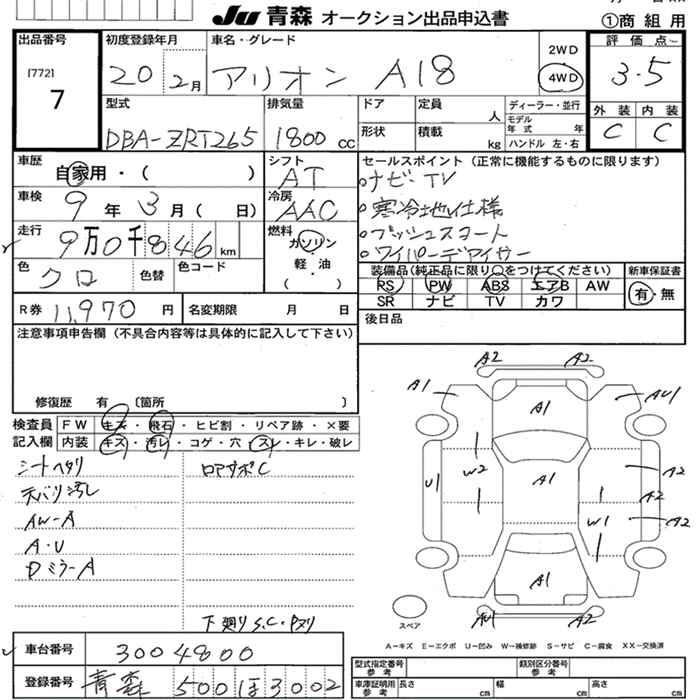 JU 青森 オークション出品申込書
①商 組 用
出品番号
[772]
7
初度登録年月
20 2月
車名・グレード
アリオン A18
2WD
4WD
評価点
3.5
外装 内装
C C
型式
DBA-ZRT265
排気量
1800 cc
ドア
定員
人
形状
積載
kg
ディーラー・並行
モデル年式 年
ハンドル 左・右
車歴
自家用・( )
シフト
AT
セールスポイント(正常に機能するものに限ります)
ナビ・TV
寒冷地仕様
プッシュスタート
ワイパーデアイサー
車検
9年3月( 日)
冷房
AAC
走行
9万0千846km
燃料
ガソリン
軽・油
( )
色
クロ
色替
色コード
装備品(純正品に限り○をつけてください)
RS PW ABS エアB AW
SR ナビ TV カワ
新車保証書
有・無
R券 11,970 円
名変期限 月 日
後日品
注意事項申告欄(不具合内容等は具体的に記入して下さい)
修復歴 有 〔箇所 〕
検査員
記入欄
FW キズ・飛石・ヒビ割・リペア跡・×要
内装 キズ・汚レ・コゲ・穴・スレ・キレ・破レ
シートヘタリ
天バリ汚レ
AW-A
A・U
Dミラ-A
ロアサポC
下廻りS.C・Pヌリ
A2 A2
A1 A1 AU1
U1 W2 A1 A2
A2
W1 A2
A1
AU1 A2
スペア
A-キズ E-エクボ U-凹み W-補修跡 S-サビ C-腐食 XX-交換済
車台番号
3004800
登録番号
青森 500 ほ 3002
型式指定番号
参考
類別区分番号
参考
車庫証明用
参考
長さ cm 幅 cm 高さ cm